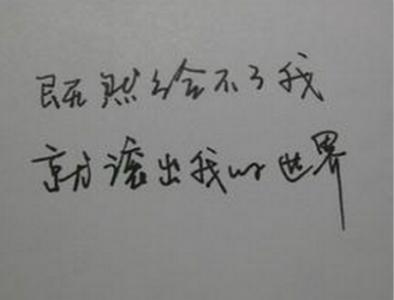 既然给不了我
就滚出我的世界